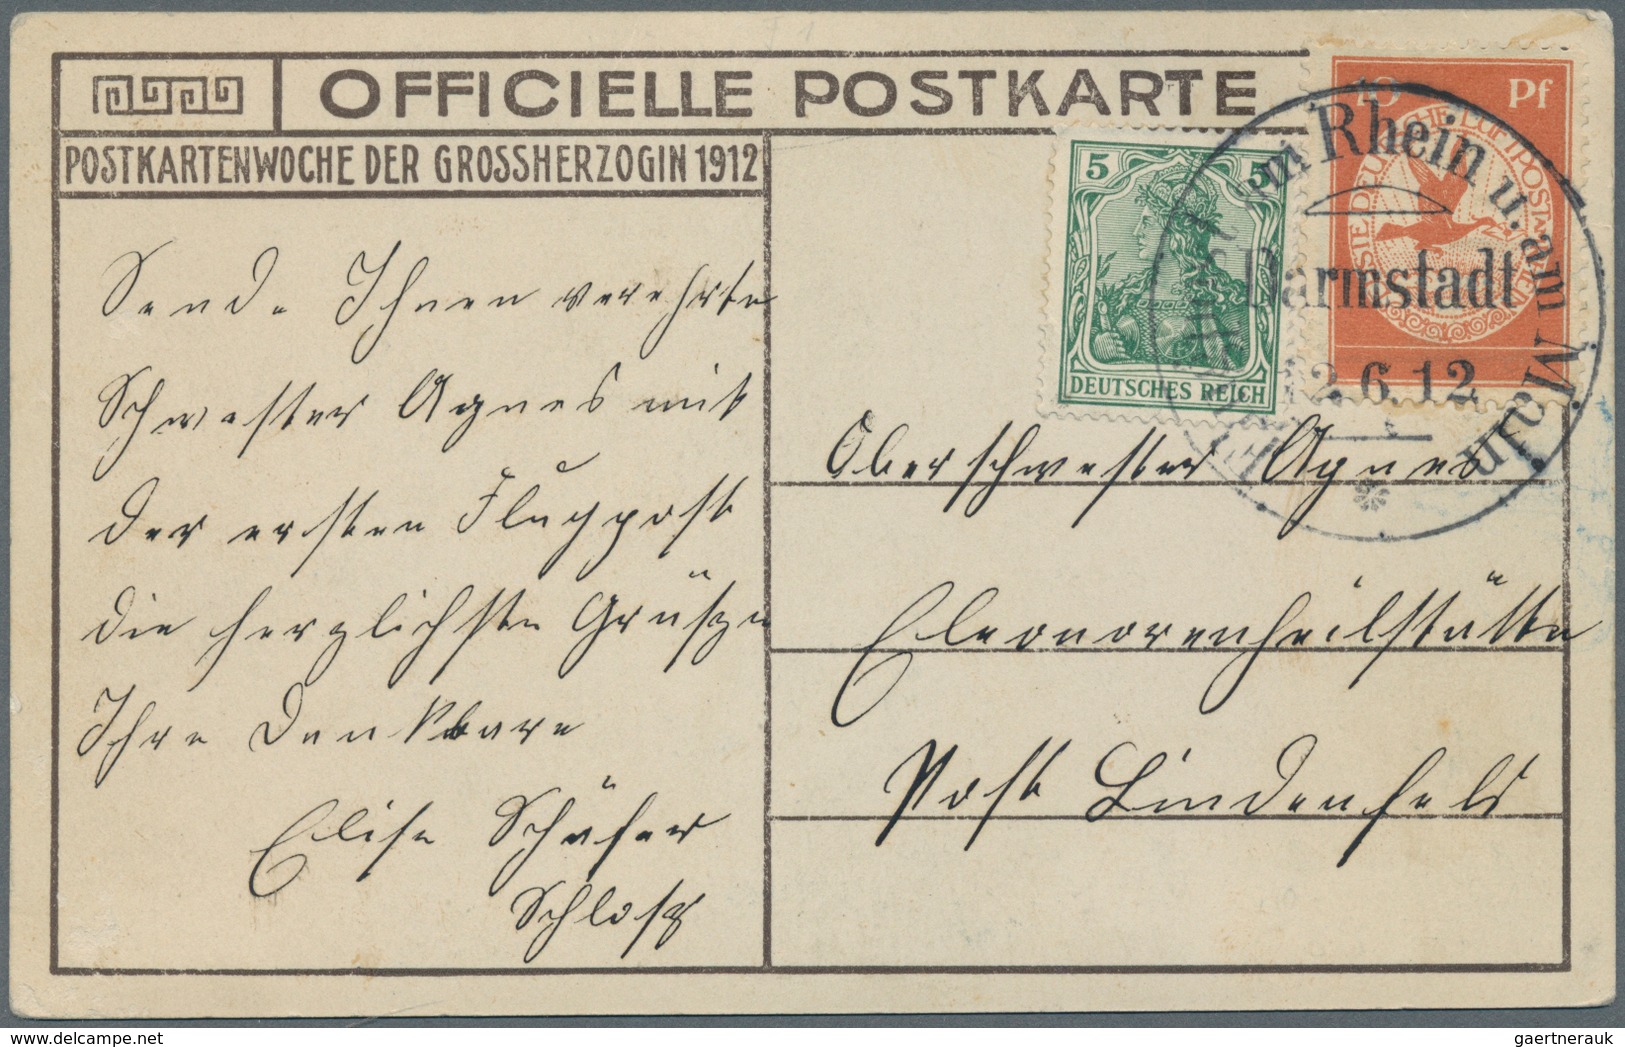 OFFICIELLE POSTKARTE
POSTKARTENWOCHE DER GROSSHERZOGIN 1912
10 Pf
5 5
DEUTSCHES REICH
am Rhein u. am Main
Darmstadt
12.6.12
Sende Ihnen verehrte
Schwester Agnes mit
der ersten Flugpost
die herzlichsten Grüße
Ihre dankbare
Elise Schäfer
Schloß
Oberschwester Agnes
Eleonorenheilstätte
Post Lindenfels
gaertnerauk